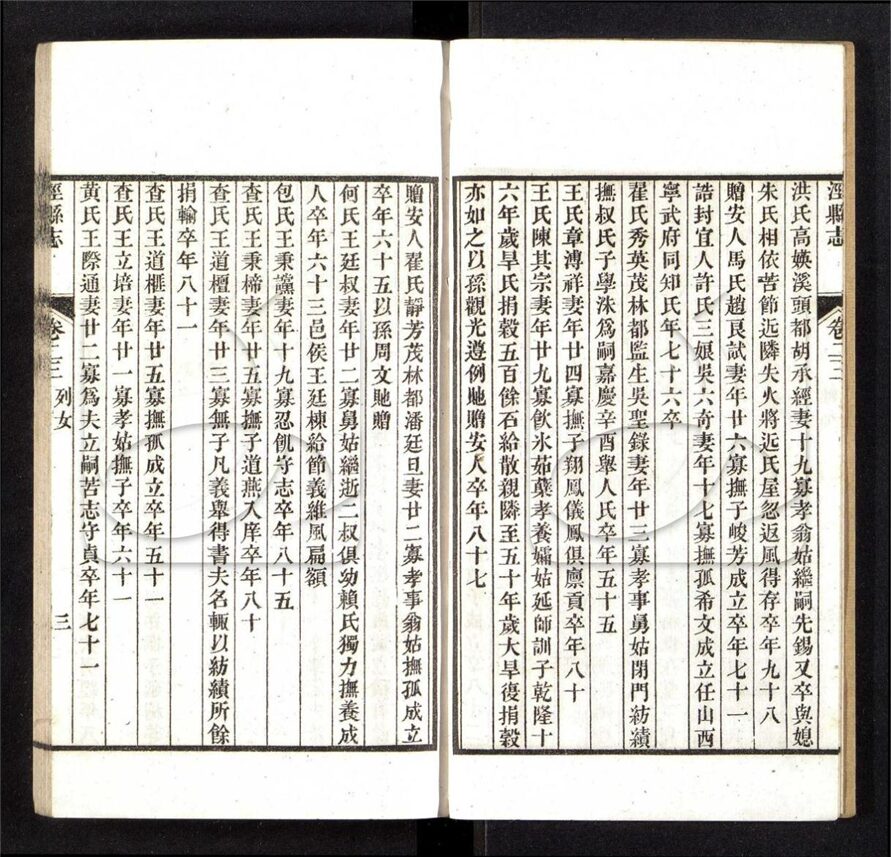 涇縣志
卷三二
洪氏高嫓溪頭都胡承經妻十九寡孝翁姑繼嗣先錫又卒與媳
朱氏相依苦節近隣失火將近氏屋忽返風得存卒年九十八
贈安人馬氏趙艮試妻年廿六寡撫子峻芳成立卒年七十一
誥封宜人許氏三娘吳六奇妻年十七寡撫孤希文成立任山西
寧武府同知氏年七十六卒
翟氏秀英茂林都監生吳聖錄妻年廿三寡孝事舅姑閉門紡績
撫叔氏子學洙爲嗣嘉慶辛酉舉人氏卒年五十五
王氏章溥祥妻年廿四寡撫子翔鳳儀鳳俱廪貢卒年八十
王氏陳其宗妻年廿九寡飲氷茹蘖孝養孀姑延師訓子乾隆十
六年歲旱氏捐穀五百餘石給散親隣至五十年歲大旱復捐穀
亦如之以孫觀光遵例貤贈安人卒年八十七
贈安人翟氏靜芳茂林都潘廷旦妻廿二寡孝事翁姑撫孤成立
卒年六十五以孫周文貤贈
何氏王廷叔妻年廿二寡舅姑繼逝二叔俱幼賴氏獨力撫養成
人卒年六十三邑侯王廷棟給節義維風扁額
包氏王秉讜妻年十九寡忍飢守志卒年八十五
查氏王秉楴妻年廿五寡撫子道燕入庠卒年八十
查氏王道檀妻年廿三寡無子凡義舉得書夫名輒以紡績所餘
捐輸卒年八十一
查氏王道榧妻年廿五寡撫孤成立卒年五十一
查氏王立培妻年廿一寡孝姑撫子卒年六十一
黃氏王際通妻廿二寡爲夫立嗣苦志守貞卒年七十一
涇縣志
卷三二 列女
三